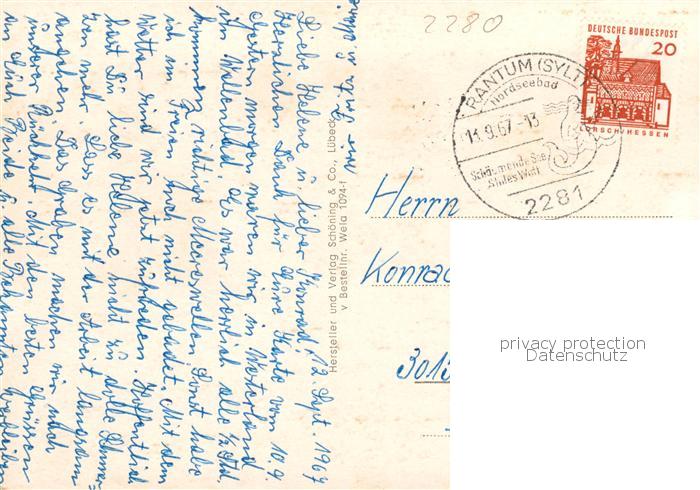 2280
DEUTSCHE BUNDESPOST
20
LORSCH/HESSEN
RANTUM (SYLT)
Nordseebad
13.9.67-13
Schäumende See
2281
Herrn
Konrad
3015
privacy protection
Datenschutz
Hersteller und Verlag Schöning & Co., Lübeck
v Bestellnr. Wela 1094-f
12. Sept. 1967
Liebe Helene u. lieber Konrad!
Herzlichen Dank für Eure Karte vom 10.9.
Gestern morgen waren wir in Westerland
im Wellenbad. Es war herrlich alle ½ Std.
kommen richtige Meereswellen. Sonst habe
ich im Freien noch nicht gebadet. Mit dem
Wetter sind wir jetzt zufrieden. Hoffentlich
hast Du liebe Helene nicht zu dolle Schmer-
zen mehr. Lass es mit der Arbeit langsam
angehen. Das draßen machen wir nach
unserer Rückkehr. Mit den besten Grüssen
an Euch Beide u. alle Bekannten verbleiben